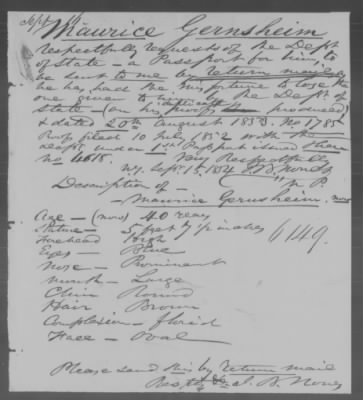 Maurice Gernsheim
Respectfully requests of the Dept
of State - a Passport for him, to
be sent to me by return mail, as
he has had the misfortune to lose the
one given to him by the Dept of
State - (on his proofs produced)
duplicate
& dated 20th August 1853. No 1785
Proofs filed 10 July 1852 with the
Dept. under 1st Passport issued there
No 4618. Very Respectfully
N.Y. Sept. 15, 1854 J. B. Nones
N. P.
Description of -
Maurice Gernsheim. now
Age - (now) 40 years
Stature - 5 feet 7 1/2 inches
Forehead High
Eyes - Blue
Nose - Prominent
Mouth - Large
Chin Round
Hair Brown
Complexion - florid
Face - Oval
6149.
Please send this by return mail
J. B. Nones